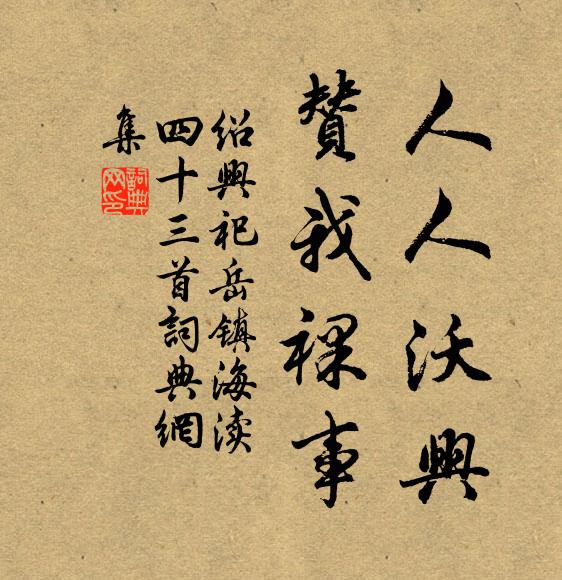 人人沃興
贊我祼事
绍興祀岳镇海渎
四十三首詞典網
集
詞典
网印